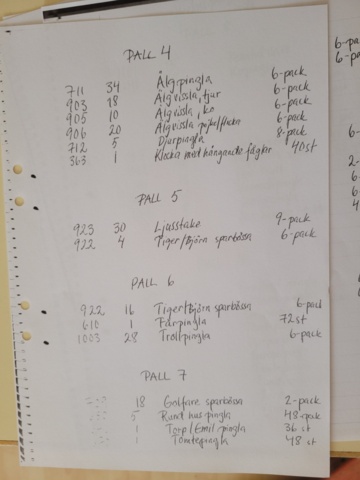 PALL 4
711 34 Älgpingla 6-pack
903 18 Älgvissla, tjur 6-pack
905 10 Älgvissla, ko 6-pack
906 20 Älgvissla pojke/flicka 6-pack
712 5 Djurpingla 8-pack
363 1 Klocka med hängande fåglar 40st
PALL 5
923 30 Ljusstake 9-pack
922 4 Tiger/Björn sparbössa 6-pack
PALL 6
922 16 Tiger/Björn sparbössa 6-pack
610 1 Fårpingla 72st
1003 28 Trollpingla 6-pack
PALL 7
18 Golfare sparbössa 2-pack
5 Rund hus pingla 48-pack
1 Torp/Emil pingla 36 st
1 Tomtepingla 48 st